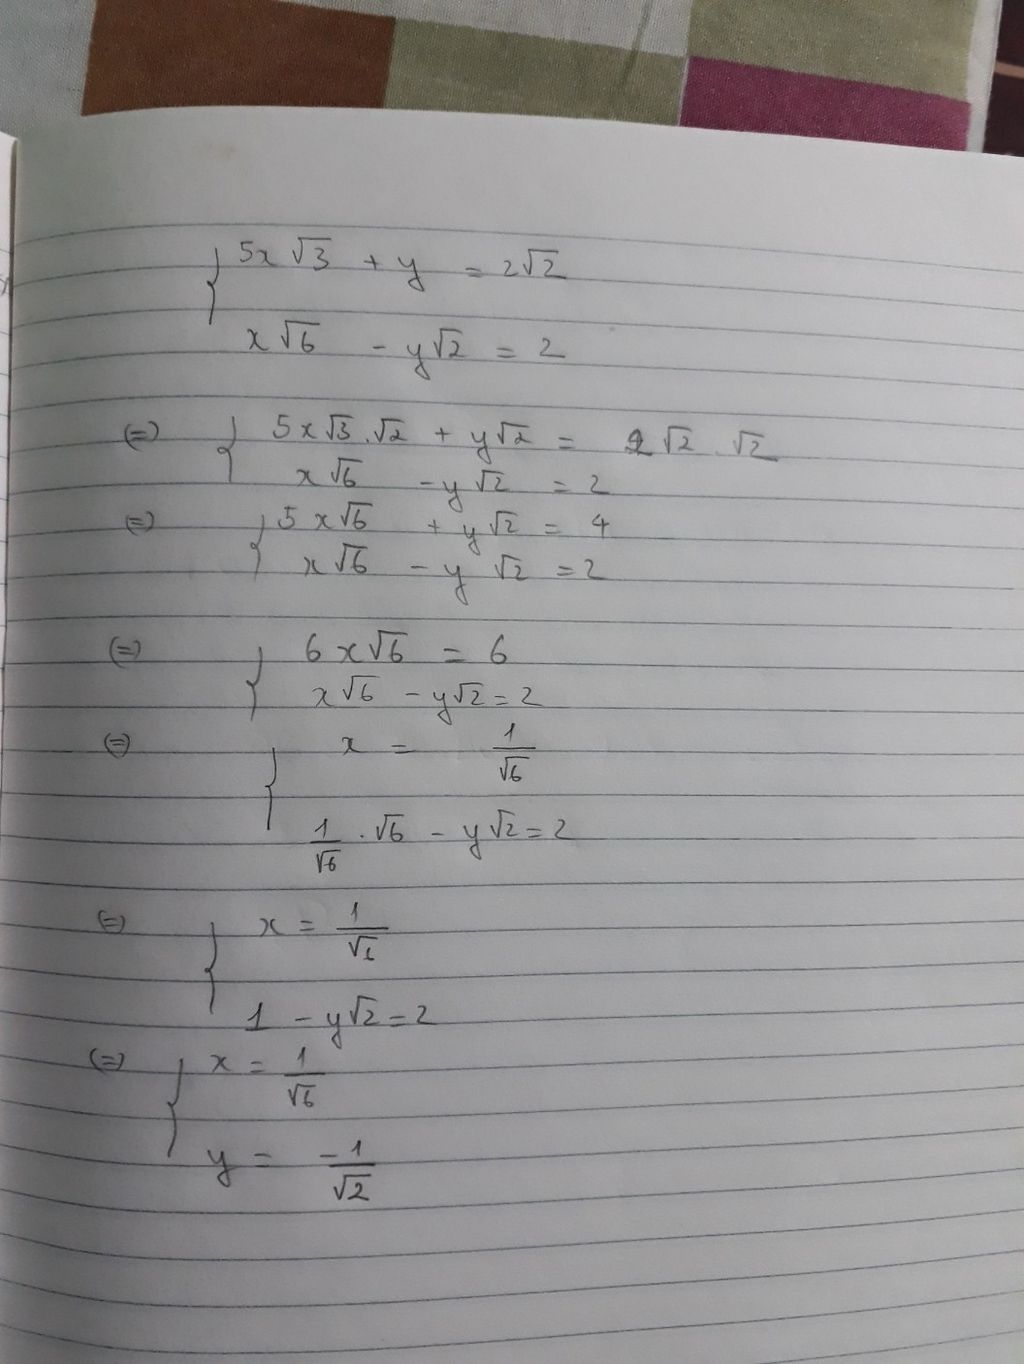 { 5x√3 + y = 2√2
x√6 - y√2 = 2
(=) { 5x√3.√2 + y√2 = 2√2.√2
x√6 - y√2 = 2
(=) { 5x√6 + y√2 = 4
x√6 - y√2 = 2
(=) { 6x√6 = 6
x√6 - y√2 = 2
(=) { x = 1/√6
1/√6 . √6 - y√2 = 2
(=) { x = 1/√6
1 - y√2 = 2
(=) { x = 1/√6
y = -1/√2